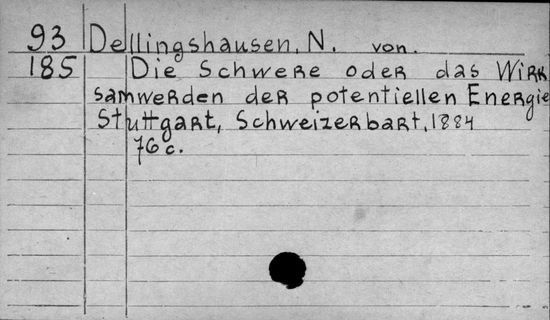 93 Dellingshausen, N. von.
185 Die Schwere oder das Wirk
samwerden der potentiellen Energie
Stuttgart, Schweizerbart, 1884
76 c.